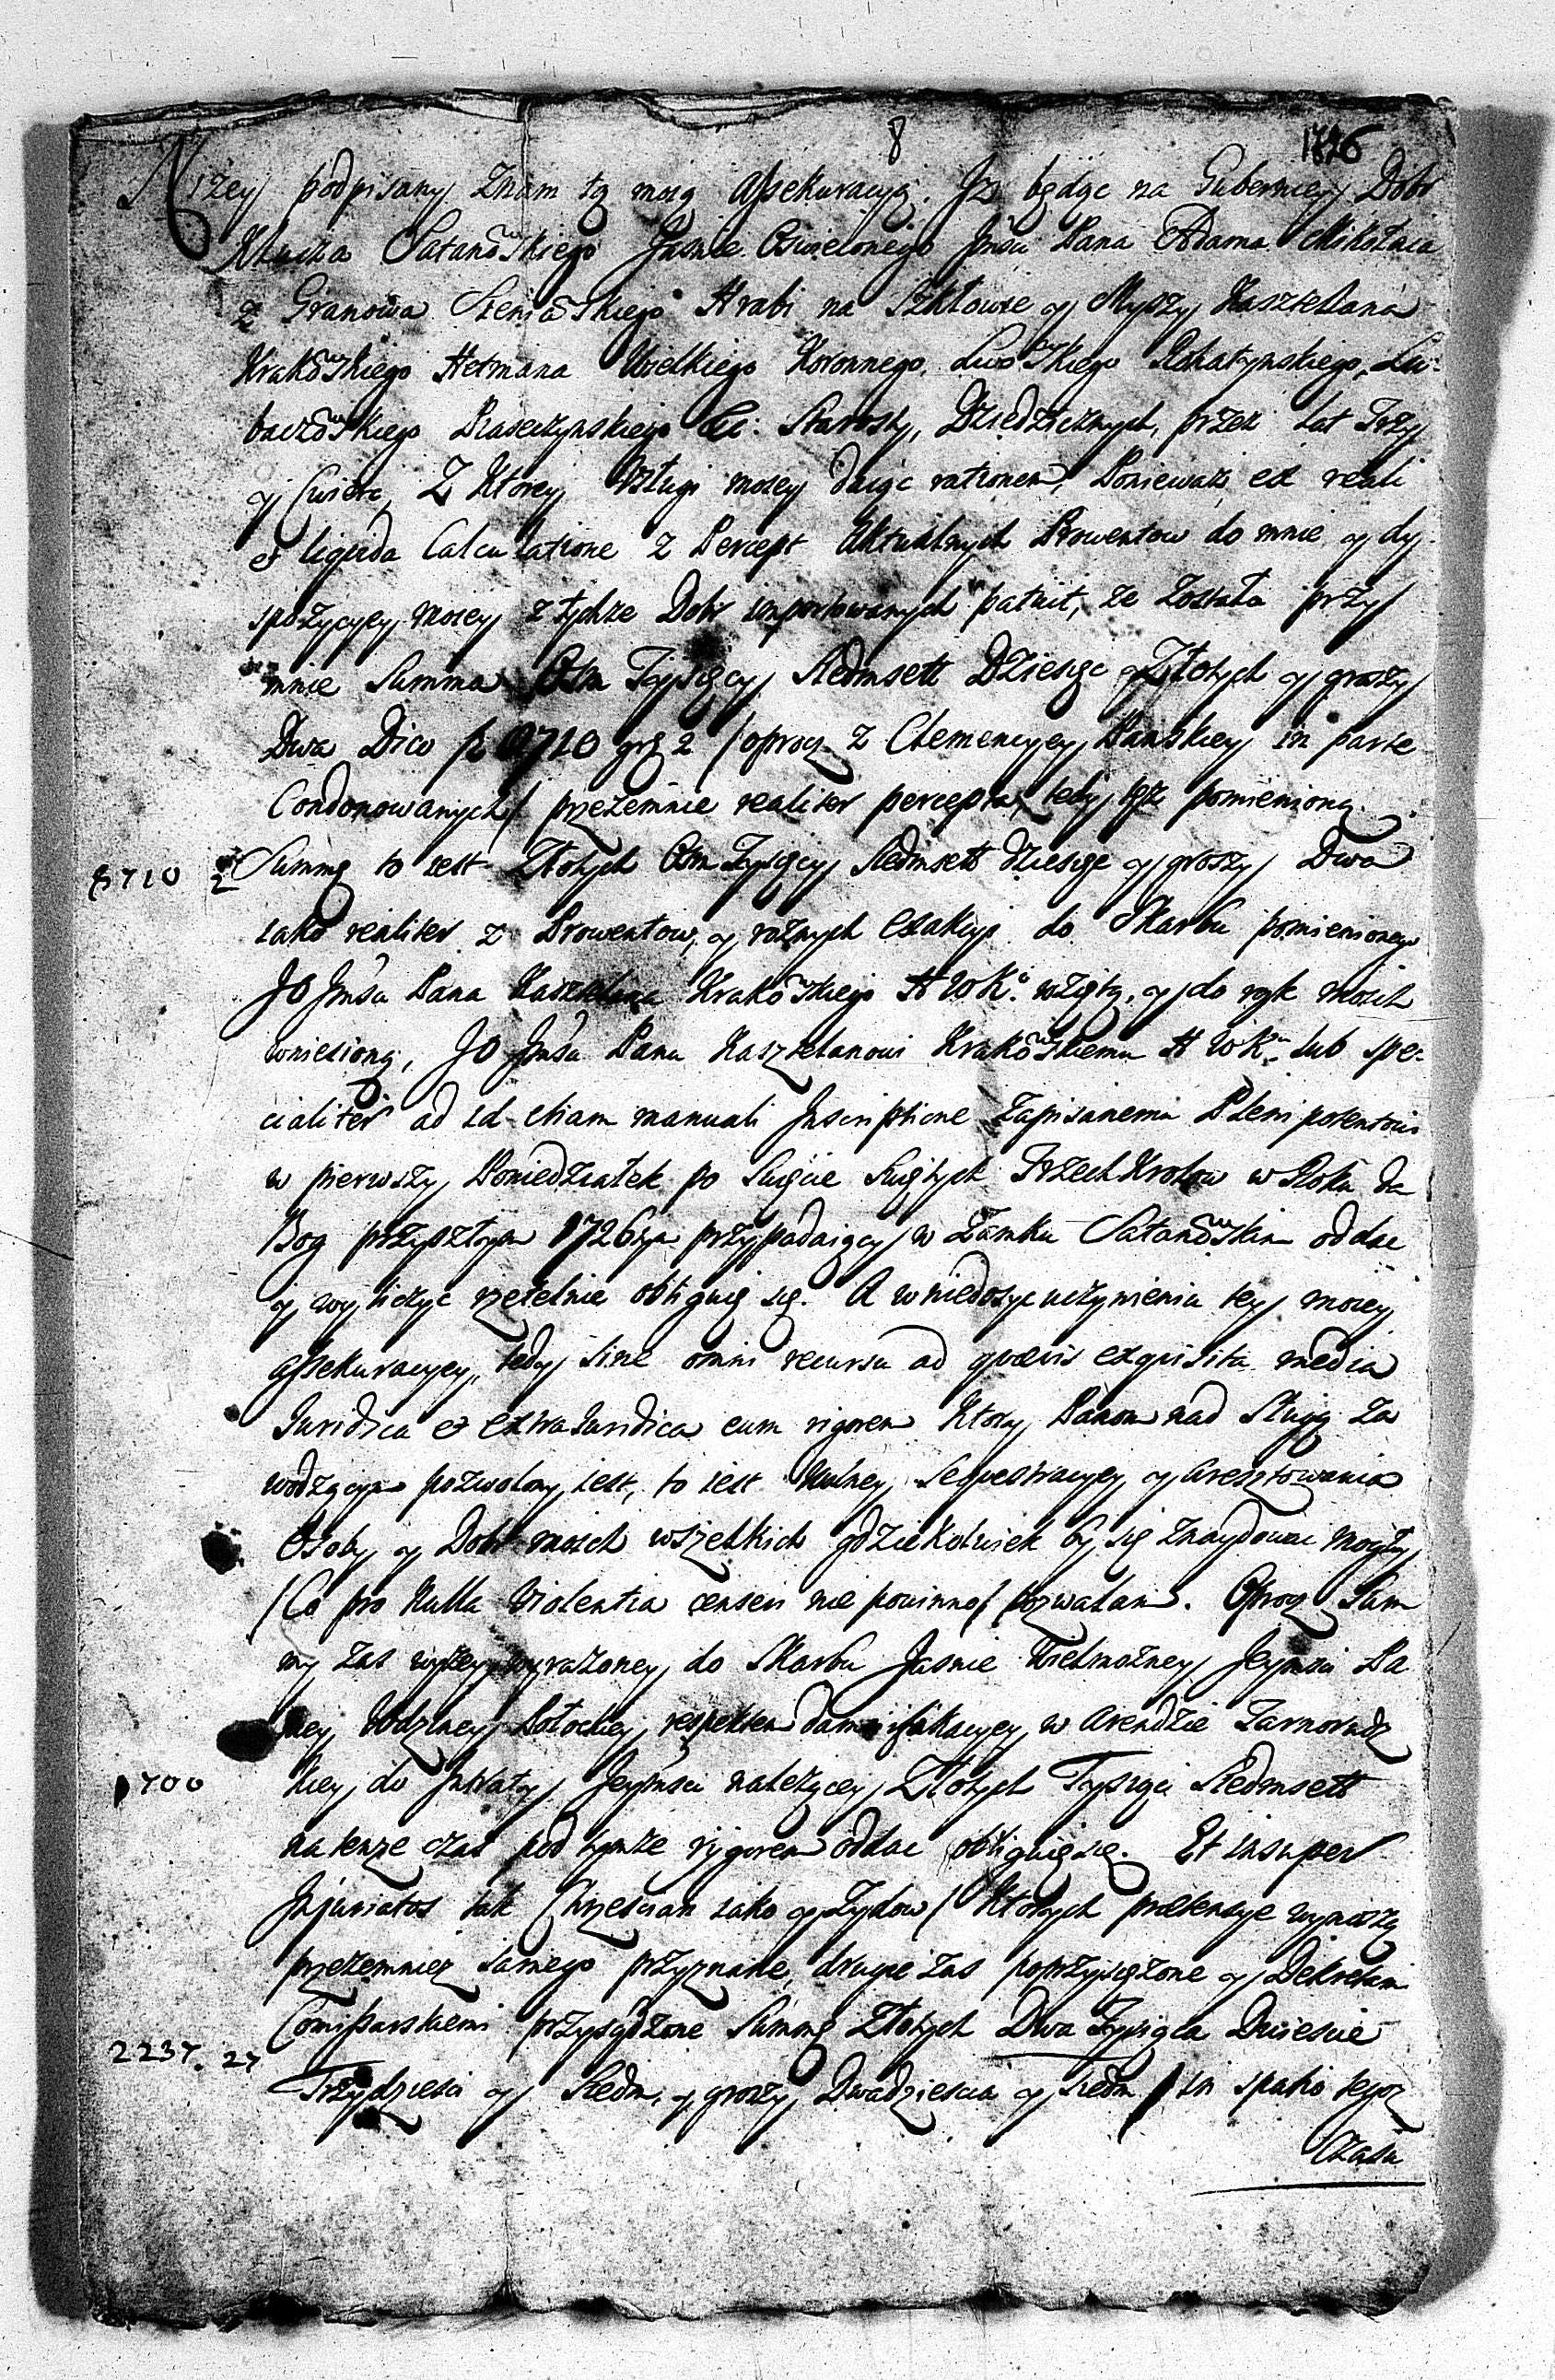 8
1726
Niżey podpisany Znam tą moią Assekuracyią. Iż będąc na Guberniey Dobr
Klucza Satanowskiego Jaśnie Oświeconego Jmśći Pana Adama Mikołaia
z Granowa Sieniawskiego Hrabi na Szkłowie y Myszy Kasztelana
Krakowskiego Hetmana Wielkiego Koronnego, Lwowskiego Rohatynskiego, Lu-
baczowskiego Piaseczynskiego &c: Starosty, Dziedzicznych, przez lat Trzy
y Cwierc, Z Ktorey Usługi moiey daiąc rationem, Poniewasz ex reali
et liqvida Calculatione z Percept Aktualnych Prowentow do mnie y dy-
spozycyey moiey z tychze Dobr importowanych patuit, ze Została przy
mnie Summa Osm Tysięcy Siedmset Dziesięc Złotych y groszy
Dwa Dico fl 8710 grg 2 /oprocz z Clemencyey Panskiey in parte
Condonowanych/ przezemnie realiter percepta, tedy tęz pomienioną
8710 2
Summę to iest Złotych Osm Tysięcy Siedmset dziesięc y groszy Dwa
iako realiter z Prowentow, y roznych Exakcyi do Skarbu pomienionego
JO Jmśći Pana Kasztelana Krakowskiego H W K: wziętą, y do rąk moich
wniesioną, JO Jmśći Panu Kasztelanowi Krakowskiemu H W K: lub spe-
cialiter ad id etiam manuali Inscriptione Zapisanemu Plenipotentowi
w pierwszy Poniedziałek po Święcie Świętych Trzech Krolow w Roku da
Bog przyszłym 1726ym przypadaiący w Zamku Satanowskim oddac
y wyliczyc rzetelnie obliguię się. A w niedosyc uczynieniu tey moiey
assekuracyey, tedy sine omni recursu ad qvaevis exqvisita media
Iuridica et extraiuridica cum rigorem Ktory Panom nad Sługą Za
wodzącym pozwolony iest, to iest Wolney Seqvestracyey y Aresztowania
Osoby y Dobr moich wszelkich gdziekolwiek by się znaydowac mogły
/Co pro Nulla Violentia censeri nie powinno/ pozwalam. Oprocz Sum
my zas wyzey wyrazoney do Skarbu Jasnie Wielmozney Jeymści Pa
niey Wdziney Potockiey respektem damnifikacyey w Arendzie Zarnorudz
1700
kiey do Jntraty Jeymści nalezącey Złotych Tysiąc Siedmset
na tenze czas pod tymze rygorem oddac obliguię się. Et insuper
Injuriatos tak Chrzescian iako y Zydow/ Ktorych praetensye wynoszą
przezemnie samego przyznane, drugie zas poprzysięzone y Dekretem
Comissarskiemi przysądzone Summę Złotych Dwa Tysiąca Dwiescie
2237. 27
Trzydziesci y Siedm, y groszy Dwadziescia y siedm / in spatio tegoz
Czasu